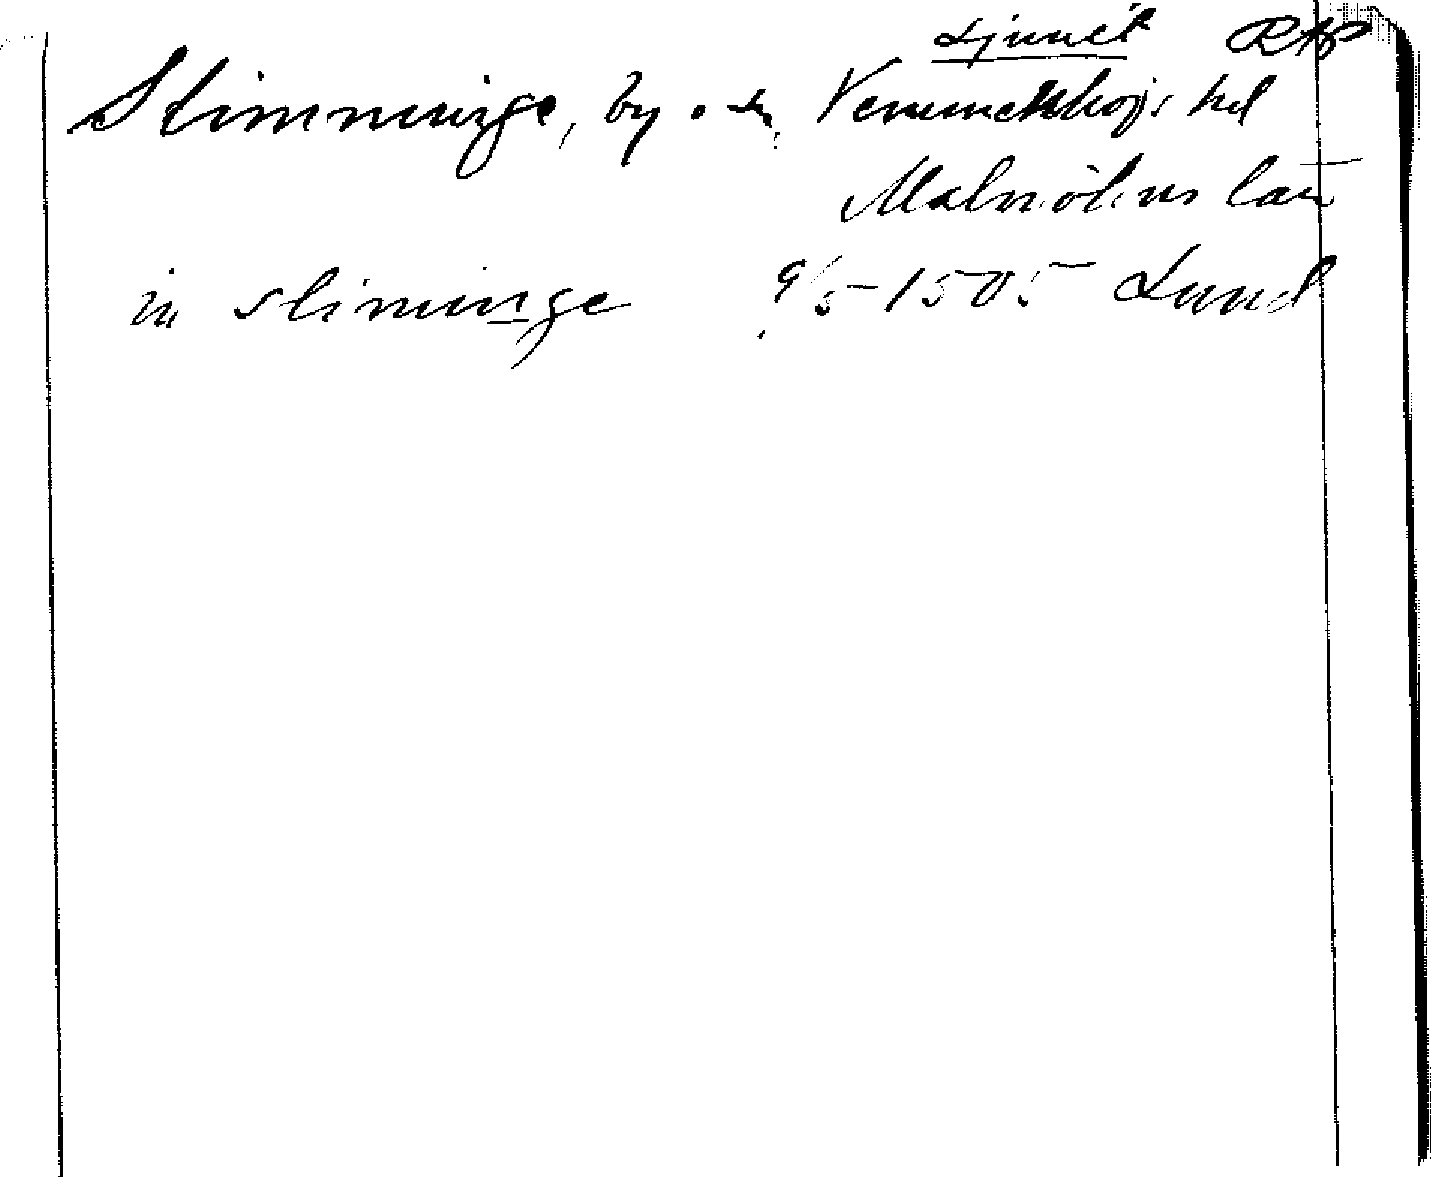 Ljunit RAP
Slimminge, by o. sn, Vemmenhögs hd
Malmöhus län
in slimin̲ge 9/5-1505 Lund